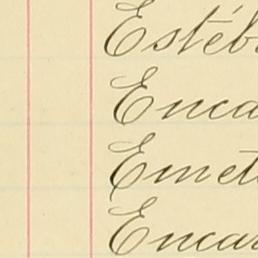 Estéb
Enca
Emet
Encar